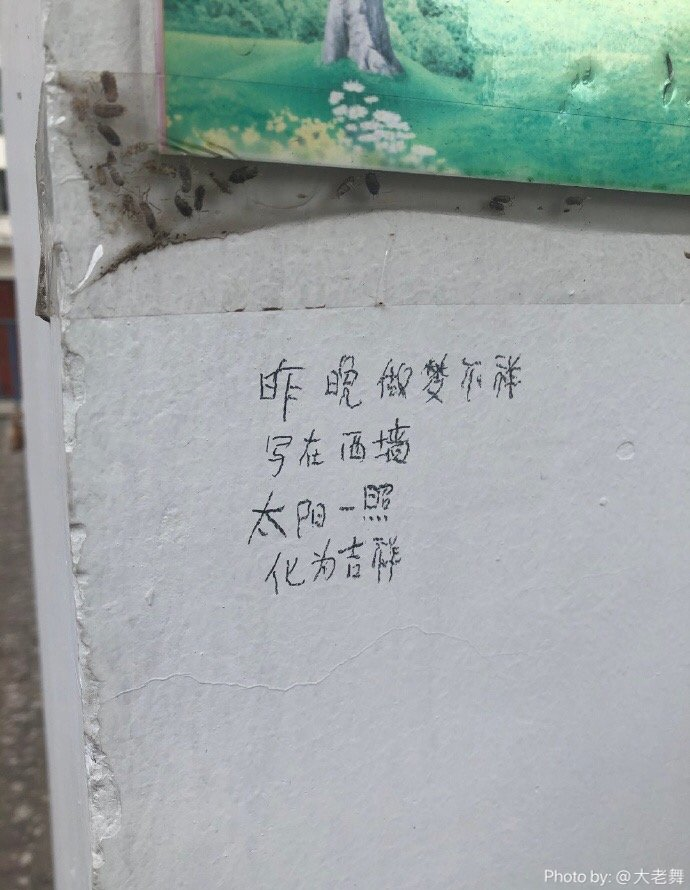 昨晚做梦不祥
写在西墙
太阳一照
化为吉祥
Photo by: @大老舞